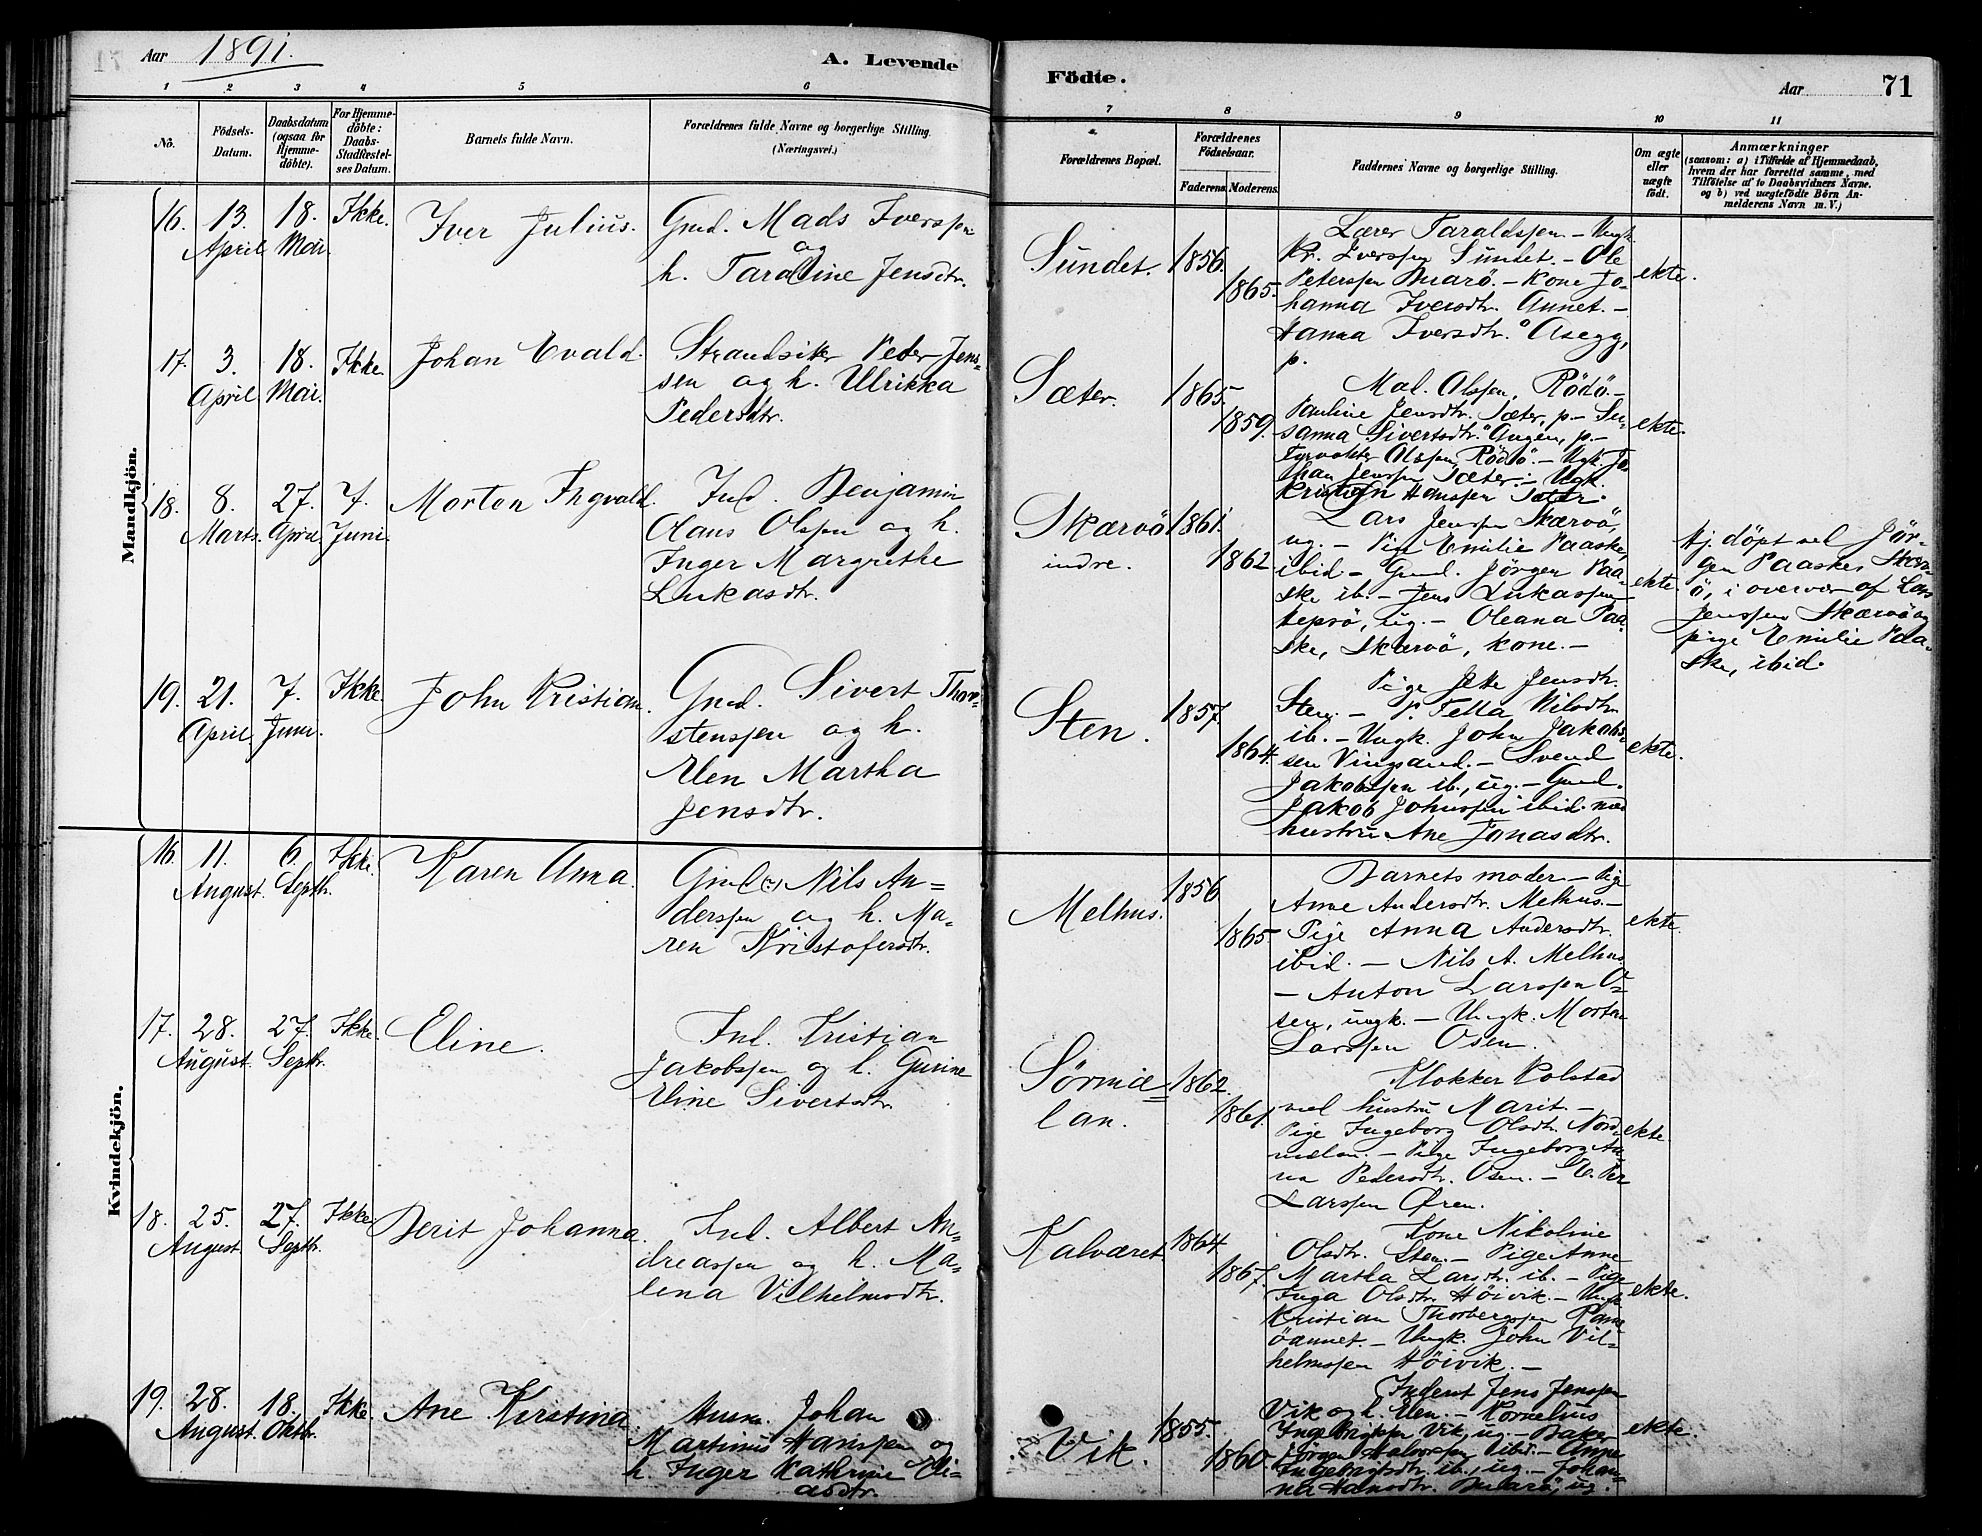 Aar 1891.
A. Levende
Födte.
Aar
71
1 2 3 4 5 6 7 8 9 10 11
No.
Födsels-Datum.
Daabsdatum (ogsaa for Hjemmedöbte).
For Hjemmedöbte: Daabs-Stadfestelses Datum.
Barnets fulde Navn.
Forældrenes fulde Navne og borgerlige Stilling. (Næringsvei.)
Forældrenes Bopæl.
Forældrenes Födselsaar.
Faderens. Moderens.
Faddernes Navne og borgerlige Stilling.
Om ægte eller uægte födt.
Anmærkninger
(saasom: a) i Tilfælde af Hjemmedaab, hvem der har forrettet samme, med Tilföielse af to Daabsvidners Navne. og b) ved uægtefödte Börn Anmelderens Navn m. V.)
Mandkjön.
16. 13. April 18. Mai. Ikke. Iver Julius.
Gmd. Mads Iverssen
og
h. Taraline Jensdtr.
Sundet. 1856. 1865.
Lærer Taraldssen - Ungk.
Kr. Iverssen Sundet. - Ole
Peterssen Buarö. - Kone Jo-
hanna Iversdtr. Aunet. -
Hanna Iversdtr. Åsegg,
p.
ekte.
17. 3. April 18. Mai. Ikke. Johan Evald.
Strandsiter Peder Jens-
sen og h. Ulrikka
Pedersdtr.
Sæter. 1865. 1859.
Mal. Olssen, Rödö. -
Pauline Jensdtr. Sæter, p. - Su-
sanna Sivertsdtr. Angen, p. -
Fyrvokter Olssen, Rödö. - Ungk. Jo-
han Jenssen Sæter. - Ungk.
Kristian Hanssen Sæter.
ekte.
18. 8. Marts. 27. April 7. Juni. Morten Ingvald.
Ind. Benjamin
Olaus Olssen og h.
Inger Margrethe
Lukasdtr.
Skærvö indre. 1861. 1862.
Lars Jenssen Skærvö,
ug. - Pige Emilie Paaske,
ibid - Gmd. Jörgen Paa-
ske ib. - Jens Lukassen
Sepsö, ug. - Oleana Paa-
ske, Skærvö, kone. -
ekte.
Hj. döpt ved Jör-
gen Paaske, Skærv-
ö, i overvær af Lars
Jenssen Skærvö og
pige Emilie Paa-
ske, ibid.
19. 21. April. 7. Juni. Ikke. John Kristian.
Gmd. Sivert Thor-
stenssen og h.
Elen Martha
Jensdtr.
Sten. 1857. 1864.
Pige Jette Jensdtr.
Sten. - P. Tella Nilsdtr.
ib. - Ungk. John Jakobs-
sen Vingsand. - Svend
Jakobssen ib., ug. - Gmd.
Jakob Johnssen ibid. med
hustru Ane Jonasdtr.
ekte.
Kvindekjön.
16. 11. August. 6. Septbr. Ikke. Karen Anna.
Gmd. Nils An-
derssen og h. Ma-
ren Kristofersdtr.
Melhus. 1856. 1865.
Barnets moder - Pige
Anne Andersdtr. Melhus. -
Pige Anna Andersdtr.
ibid. - Nils A. Melhus.
- Anton Larssen O-
sen, ungk. - Ungk. Morten
Larssen Osen.
ekte.
17. 28. August. 27. Septbr. Ikke. Eline.
Ind. Kristian
Jakobssen og h. Gurine
Eline Sivertsdtr.
Sörmelan. 1862. 1861.
Klokker Kolstad
med hustru Marit. -
Pige Ingeborg Olsdtr. Nord-
melan. - Pige Ingeborg An-
na Pedersdtr. Osen. - E. Per
Larssen Øren.
ekte
18. 25. August. 27. Septbr. Ikke. Berit Johanna.
Ind. Albert An-
dreassen og h. Ma-
lena Vilhelmsdtr.
Kalværet. 1864. 1867.
Kone Nikoline
Olsdtr. Sten. - Pige Anne
Martha Larsdtr. ib. - Pige
Inga Olsdtr. Höivik. - Ungk.
Kristian Thorbergssen Ram-
söaunet. - Ungk. John Vil-
helmssen Höivik. -
ekte.
19. 28. August. 18. Oktbr. Ikke. Ane Kirstina.
Husm. Johan
Martinus Hanssen og
h. Inger Kathrine Eli-
asdtr.
Vik. 1855. 1860.
Inderst Jens Jenssen
Vik og h. Elen. - Kornelius
Ingebrigtsen Vik, ug. - Baker
Jörgen Halvorssen ibid. - Anne
Ingebrigtsdtr. ib., ug. - Johan-
na Hansdtr. Buarö, ug.
ekte.